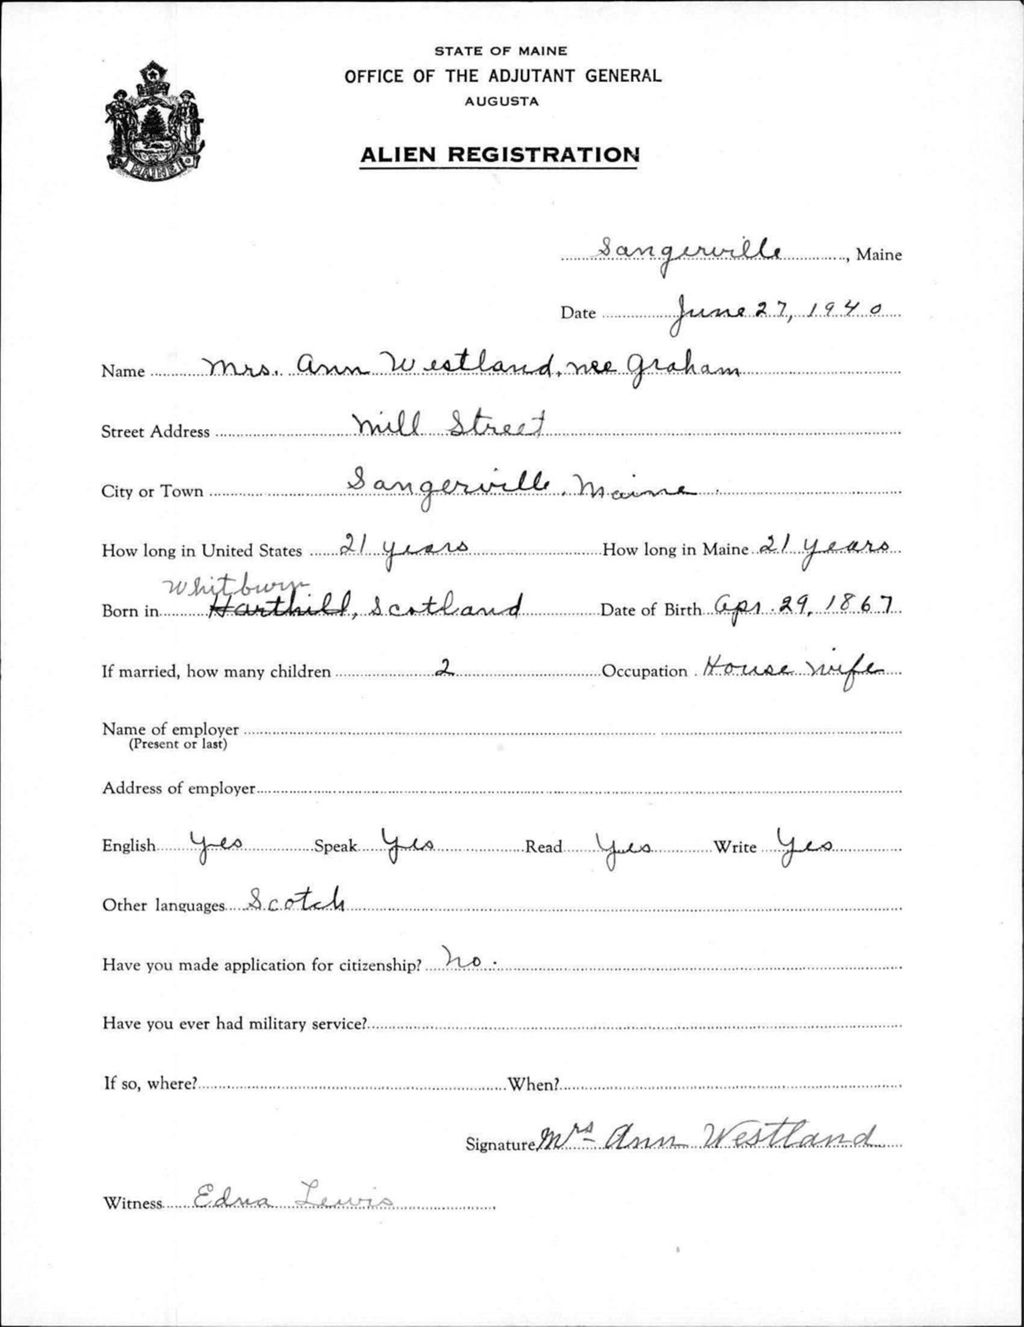 STATE OF MAINE
OFFICE OF THE ADJUTANT GENERAL
AUGUSTA
ALIEN REGISTRATION
MAINE
Sangerville, Maine
Date June 27, 1940
Name Mrs. Ann Westland, nee Graham
Street Address Mill Street
City or Town Sangerville, Maine.
How long in United States 21 years How long in Maine 21 years
Whitburn
Born in Harthill, Scotland Date of Birth Apr. 29, 1867
If married, how many children 2 Occupation House wife
Name of employer
(Present or last)
Address of employer
English Yes Speak Yes Read Yes Write Yes
Other languages Scotch
Have you made application for citizenship? No.
Have you ever had military service?
If so, where? When?
Signature Mrs Ann Westland
Witness Edna Lewis